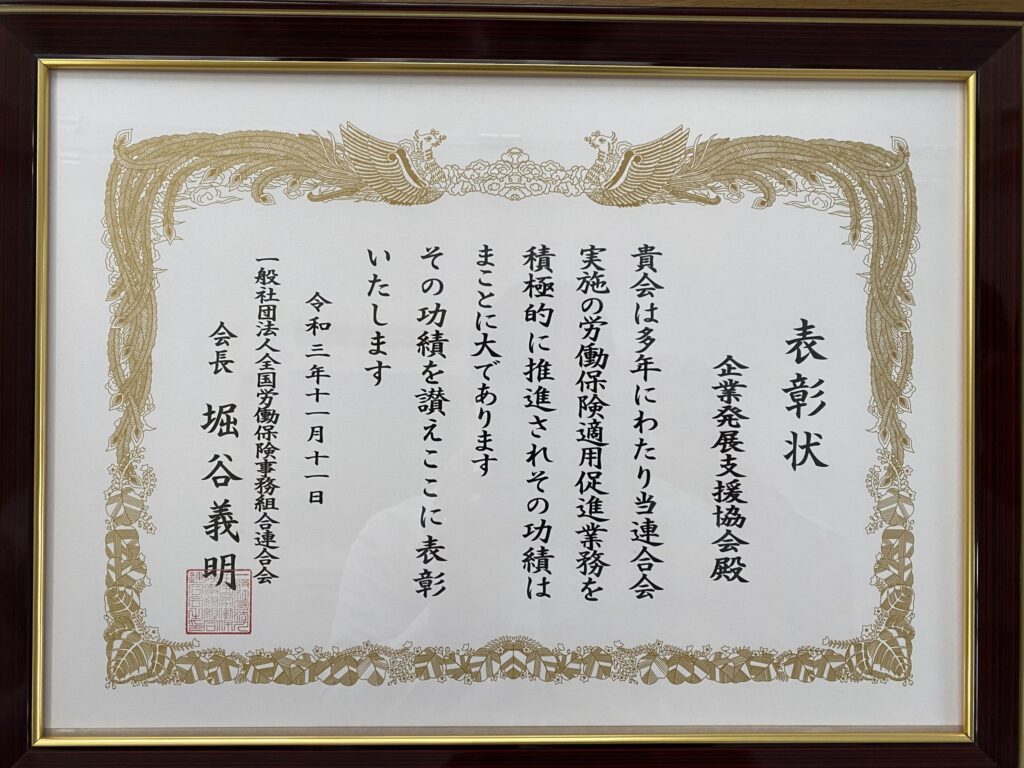 表彰状
企業発展支援協会殿
貴会は多年にわたり当連合会
実施の労働保険適用促進業務を
積極的に推進されその功績は
まことに大であります
その功績を讃えここに表彰
いたします
令和三年十一月十一日
一般社団法人全国労働保険事務組合連合会
会長 堀谷義明